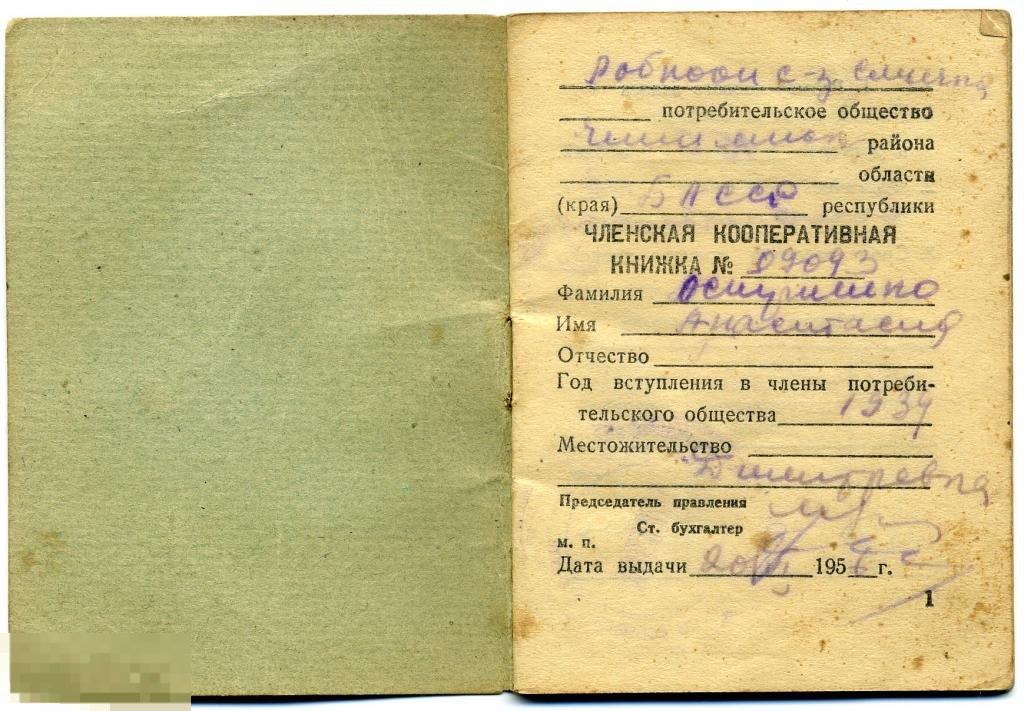 потребительское общество
района
области
(края) БАССР республики
ЧЛЕНСКАЯ КООПЕРАТИВНАЯ
КНИЖКА № 09093
Фамилия
Имя Анастасия
Отчество
Год вступления в члены потреби-
тельского общества 1934
Местожительство
Председатель правления
Ст. бухгалтер
м. п.
Дата выдачи 195 г.
1